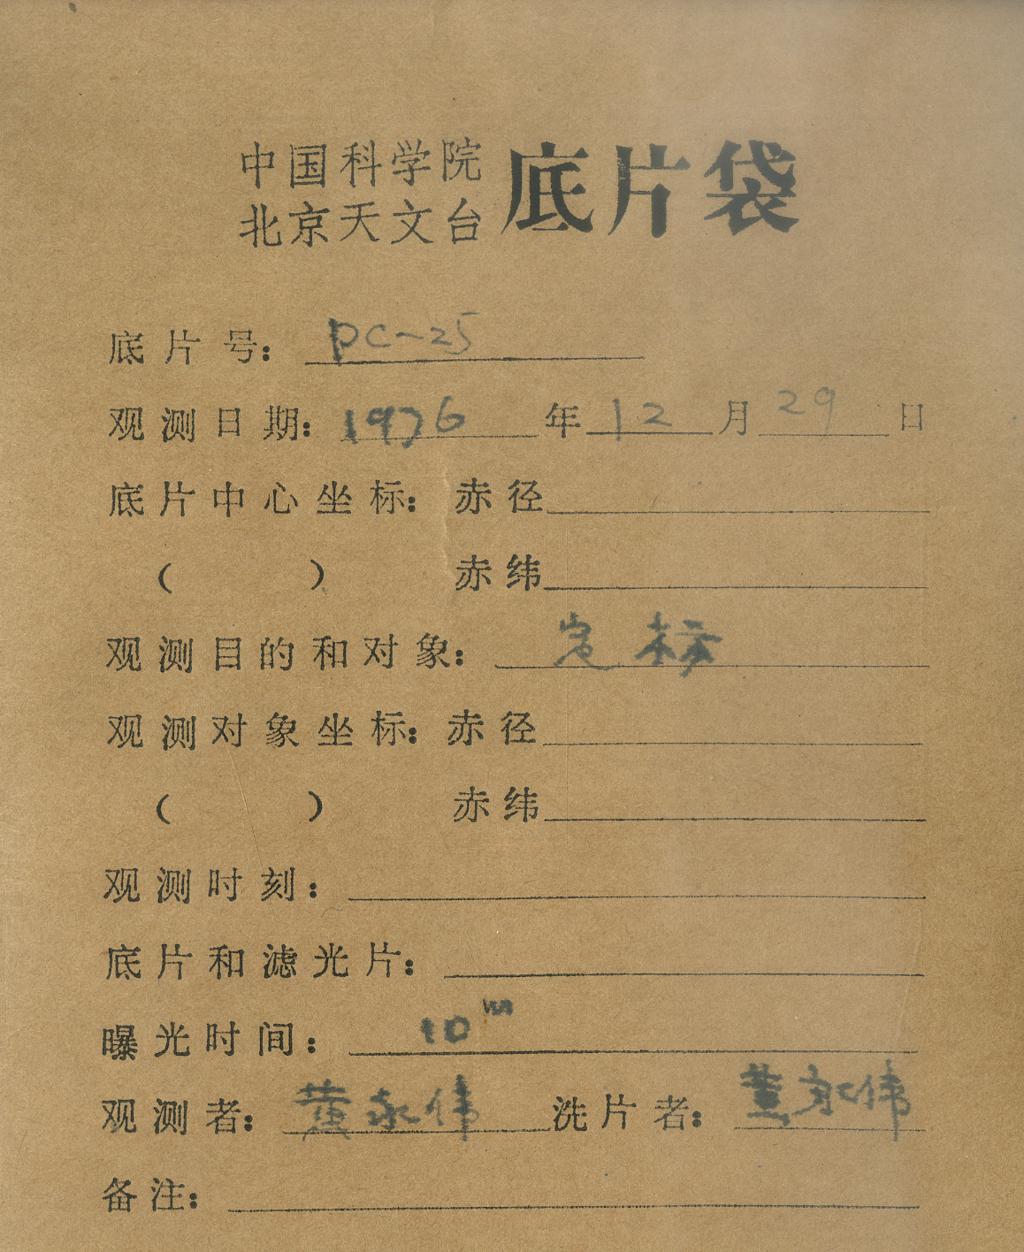 中国科学院
北京天文台
底片袋
底片号: PC-25
观测日期: 1976年12月29日
底片中心坐标: 赤径
( ) 赤纬
观测目的和对象: 定标
观测对象坐标: 赤径
( ) 赤纬
观测时刻:
底片和滤光片:
曝光时间: 10m
观测者: 黄永伟 洗片者: 黄永伟
备注: